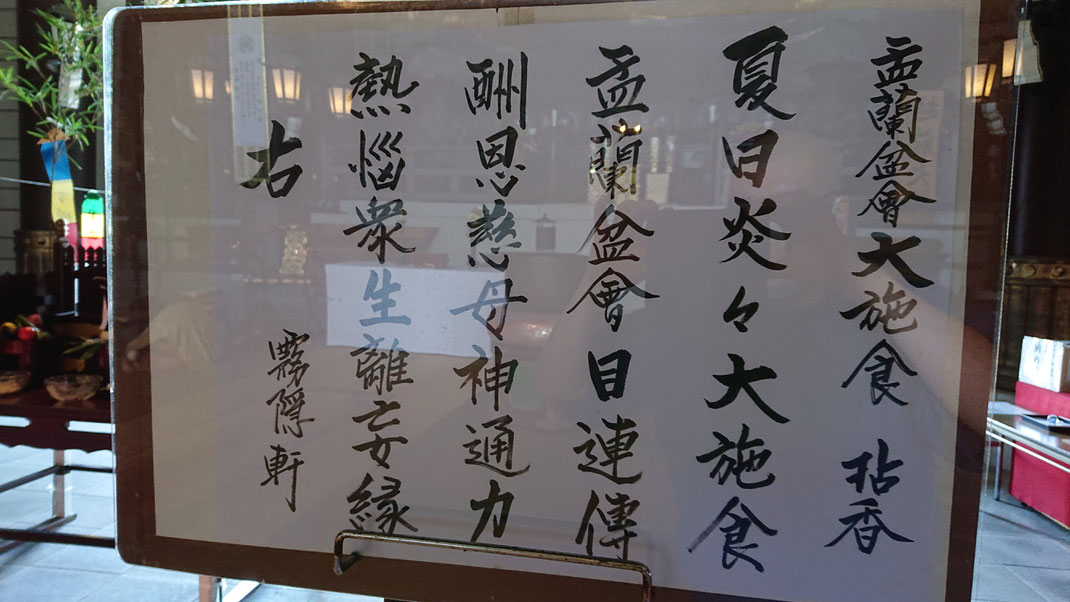 盂蘭盆會大施食 拈香
夏日炎々大施食
盂蘭盆會目連傳
酬恩慈母神通力
熱惱衆生離妄縁
右
霧隠軒